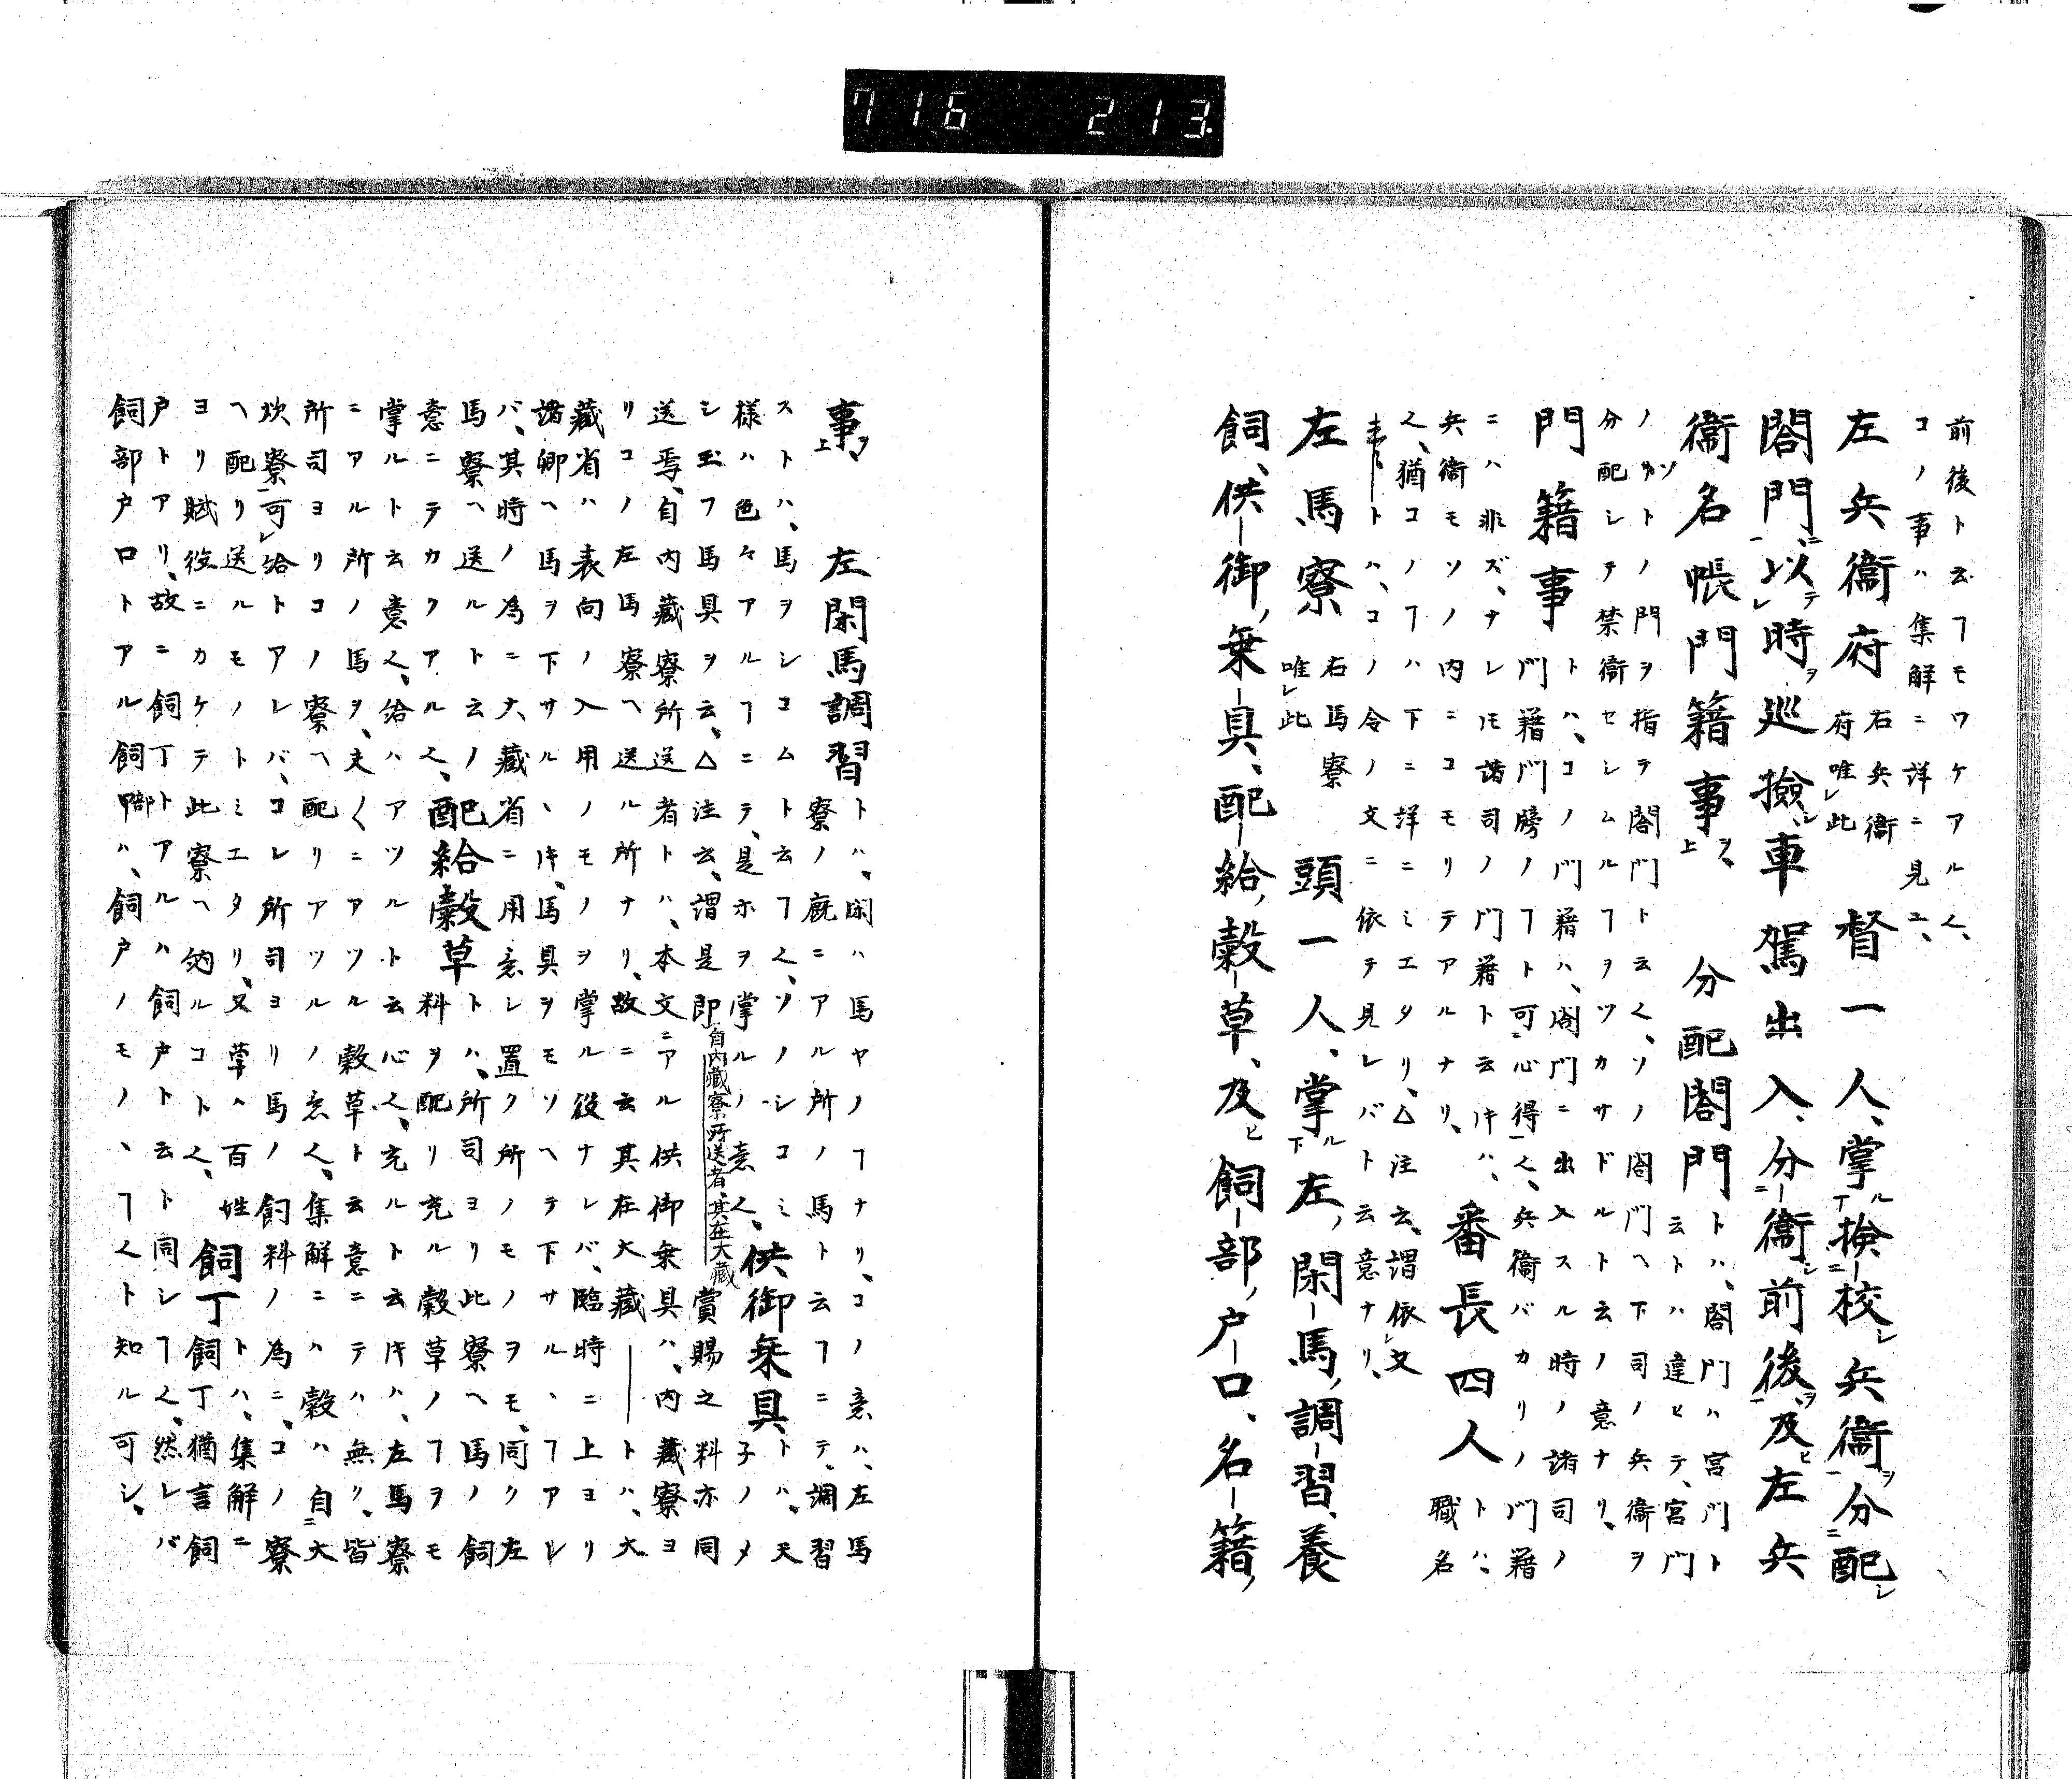 716 213.
前後ト云ヿモワケアルㄟ、
コノ事ハ集解ニ詳ニ見ユ、
左兵衞府 右兵衞府唯レ此 督一人、掌ル下撿二校シ兵衞一ヲ分二配シ
閤門一ニ、以レテ時ヲ巡撿シ、車駕出入、分二衞シ前後一ヲ、及ヒ左兵
衞名帳門籍事上ヲ、 分配閤門 トハ、閤門ハ宮門ト
云トハ違ヒテ、宮門
ノソトノ門ヲ指テ閤門ト云ㄟ、ソノ閤門ヘ下司ノ兵衞ヲ
分配シテ禁衞セシムルヿヲツカサドルト云ノ意ナリ、
門籍事 トハ、コノ門籍ハ、閤門ニ出入スル時ノ諸司ノ
門籍門牓ノヿト可二心得一ㄟ、兵衞バカリノ門籍
ニハ非ズ、ナレ𪜈諸司ノ門籍ト云𪜈ハ、 番長四人 トハ、職名
兵衞モソノ内ニコモリテアルナリ、
ㄟ、猶コノヿハ下ニ詳ニミエタリ、△注云、謂依レ文
トハ、コノ令ノ文ニ依テ見レバト云意ナリ、
左馬寮 右馬寮唯レ此 頭一人、掌ル下左閑馬、調習、養
飼、供御、乗具、配給、穀草、及ヒ飼部、戸口、名籍、
事上ヲ、 左閑馬調習 トハ、閑ハ馬ヤノヿナリ、コノ意ハ、左馬
寮ノ厩ニアル所ノ馬ト云ヿニテ、調習
ストハ、馬ヲシコムト云ヿㄟ、ソノシコミ 供御乗具 トハ、天子ノメ
様ハ色々アルヿニテ、是亦ヲ掌ルノ意ㄟ、
シ玉フ馬具ヲ云、△注云、謂是即自内藏寮所送者、其在大藏賞賜之料亦同
送焉、自内藏寮所送者トハ、本文ニアル供御乗具ハ、内藏寮ヨ
リコノ左馬寮ヘ送ル所ナリ、故ニ云其在大藏――トハ、大
藏省ハ表向ノ入用ノモノヲ掌ル役ナレバ、臨時ニ上ヨリ
諸卿ヘ馬ヲ下サルヽ𪜈、馬具ヲモソヘテ下サルヽヿアレ
バ、其時ノ為ニ大藏省ニ用意シ置ク所ノモノヲモ、同ク左
馬寮ヘ送ルト云ノ 配給穀草 トハ、所司ヨリ此寮ヘ馬ノ飼
意ニテカクアルㄟ、 料ヲ配リ充ル穀草ノヿヲモ
掌ルト云意ㄟ、給ハアツルト云心ㄟ、充ルト云𪜈ハ、左馬寮
ニアル所ノ馬ヲ、夫〱ニアツル穀草ト云意ニテハ無リ、皆
所司ヨリコノ寮ヘ配リアツルノ意ㄟ、集解ニハ穀ハ自二大
炊寮一可レ給トアレバ、コレ所司ヨリ馬ノ飼料ノ為ニ、コノ寮
ヘ配リ送ルモノトミエタリ、又草ハ百姓 飼丁 トハ、集解ニ
ヨリ賦役ニカケテ此寮ヘ納ルコトㄟ、 飼丁猶言飼
戸トアリ、故ニ飼丁トアルハ飼戸ト云ト同シヿㄟ、然レバ
飼部戸口トアル飼部ハ、飼戸ノモノヽヿㄟト知ル可シ、